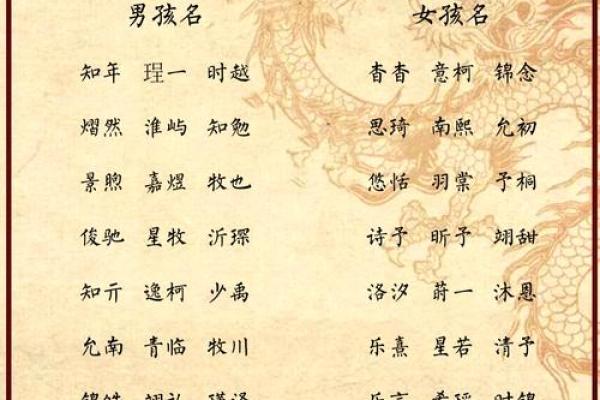 男孩名 女孩名
知年 珵一 时越 杳杳 意柯 锦念
熠然 淮屿 知勉 思琦 南熙 允初
景煦 嘉煜 牧也 悠恬 羽棠 予桐
俊驰 星牧 沂琛 诗予 昕予 翊甜
知亓 逸柯 少禹 洛汐 莳一 沐恩
允南 青临 牧川 乐熹 星若 清予